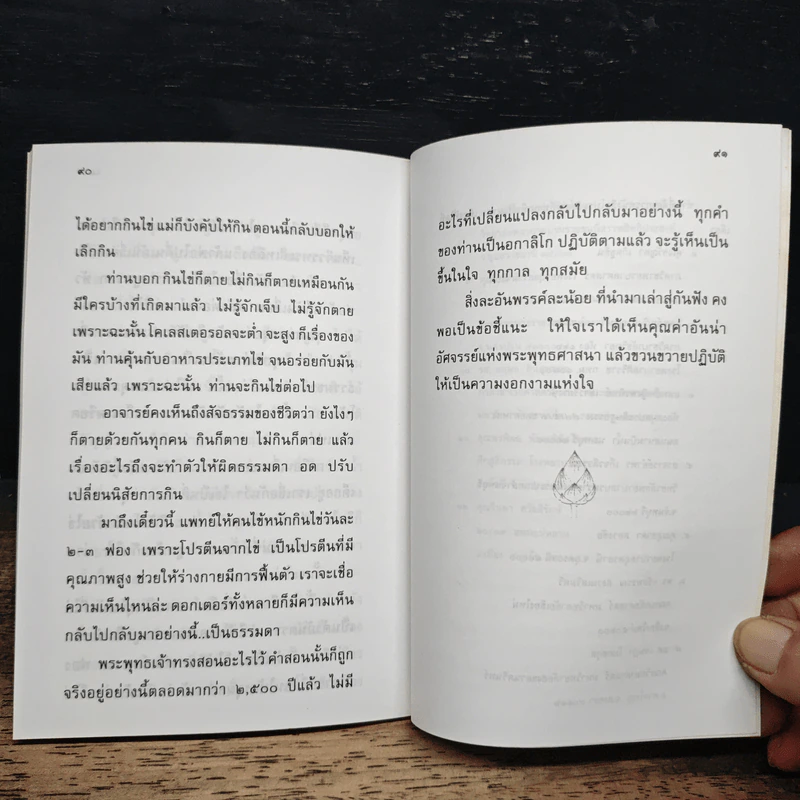 ๙๐
ได้อยากกินไข่ แม่ก็บังคับให้กิน ตอนนี้กลับบอกให้
เลิกกิน
ท่านบอก กินไข่ก็ตาย ไม่กินก็ตายเหมือนกัน
มีใครบ้างที่เกิดมาแล้ว ไม่รู้จักเจ็บ ไม่รู้จักตาย
เพราะฉะนั้น โคเลสเตอรอลจะต่ำ จะสูง ก็เรื่องของ
มัน ท่านคุ้นกับอาหารประเภทไข่ จนอร่อยกับมัน
เสียแล้ว เพราะฉะนั้น ท่านจะกินไข่ต่อไป
อาจารย์คงเห็นถึงสัจธรรมของชีวิตว่า ยังไงๆ
ก็ตายด้วยกันทุกคน กินก็ตาย ไม่กินก็ตาย แล้ว
เรื่องอะไรถึงจะทำตัวให้ผิดธรรมดา อด ปรับ
เปลี่ยนนิสัยการกิน
มาถึงเดี๋ยวนี้ แพทย์ให้คนไข้หนักกินไข่วันละ
๒-๓ ฟอง เพราะโปรตีนจากไข่ เป็นโปรตีนที่มี
คุณภาพสูง ช่วยให้ร่างกายมีการฟื้นตัว เราจะเชื่อ
ความเห็นไหนล่ะ ดอกเตอร์ทั้งหลายก็มีความเห็น
กลับไปกลับมาอย่างนี้..เป็นธรรมดา
พระพุทธเจ้าทรงสอนอะไรไว้ คำสอนนั้นก็ถูก
จริงอยู่อย่างนี้ตลอดมากว่า ๒,๕๐๐ ปีแล้ว ไม่มี
๙๑
อะไรที่เปลี่ยนแปลงกลับไปกลับมาอย่างนี้ ทุกคำ
ของท่านเป็นอกาลิโก ปฏิบัติตามแล้ว จะรู้เห็นเป็น
ขึ้นในใจ ทุกกาล ทุกสมัย
สิ่งละอันพรรค์ละน้อย ที่นำมาเล่าสู่กันฟัง คง
พอเป็นข้อชี้แนะ ให้ใจเราได้เห็นคุณค่าอันน่า
อัศจรรย์แห่งพระพุทธศาสนา แล้วขวนขวายปฏิบัติ
ให้เป็นความงอกงามแห่งใจ